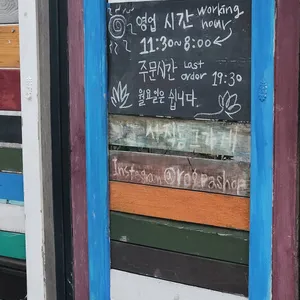 영업 시간 working
hour
11:30~8:00
주문시간 Last
order 19:30
월요일은 쉽니다.
Instagram@rogpashop